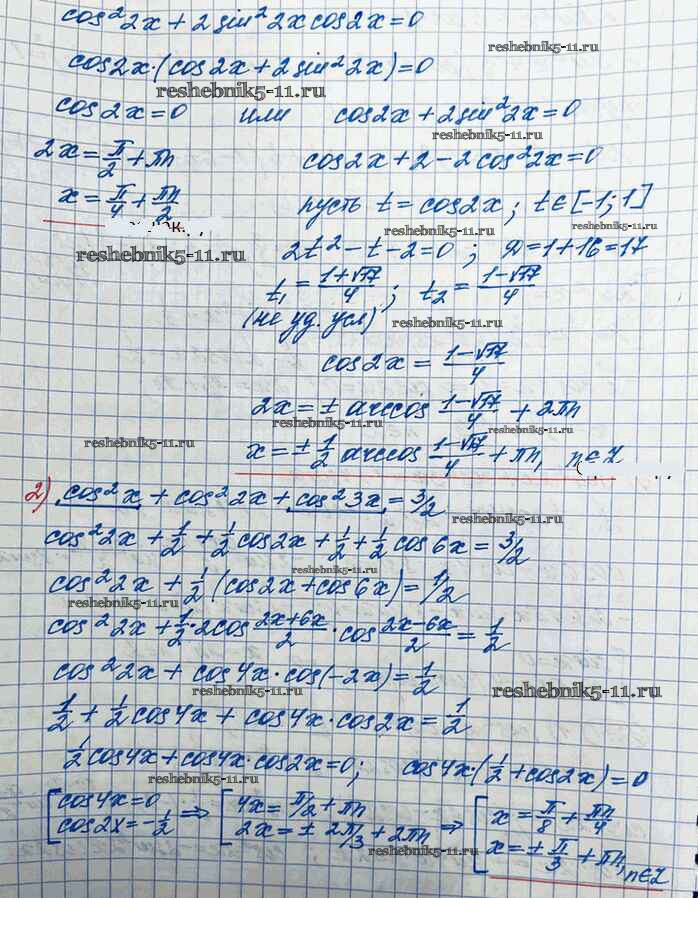 cos²2x + 2sin²2x cos2x = 0
reshebnik5-11.ru
cos2x·(cos2x + 2sin²2x) = 0
reshebnik5-11.ru
cos2x = 0 или cos2x + 2sin²2x = 0
reshebnik5-11.ru
2x = π/2 + πn
cos2x + 2 - 2cos²2x = 0
x = π/4 + πn/2
пусть t = cos2x; t ∈ [-1; 1]
reshebnik5-11.ru
2t² - t - 2 = 0; Д = 1 + 16 = 17
t₁ = (1+√17)/4; t₂ = (1-√17)/4
(не уд. усл)
reshebnik5-11.ru
cos2x = (1-√17)/4
2x = ± arccos (1-√17)/4 + 2πn
reshebnik5-11.ru reshebnik5-11.ru
x = ± 1/2 arccos (1-√17)/4 + πn, n ∈ Z
2) cos²x + cos²2x + cos²3x = 3/2
cos²2x + 1/2 + 1/2 cos2x + 1/2 + 1/2 cos6x = 3/2
reshebnik5-11.ru
cos²2x + 1/2 (cos2x + cos6x) = 1/2
reshebnik5-11.ru
cos²2x + 1/2·2cos (2x+6x)/2 · cos (2x-6x)/2 = 1/2
cos²2x + cos4x·cos(-2x) = 1/2
reshebnik5-11.ru reshebnik5-11.ru
1/2 + 1/2 cos4x + cos4x·cos2x = 1/2
1/2 cos4x + cos4x·cos2x = 0; cos4x·(1/2 + cos2x) = 0
reshebnik5-11.ru
[cos4x = 0 ⇒ [4x = π/2 + πn ⇒ [x = π/8 + πn/4
cos2x = -1/2 2x = ± 2π/3 + 2πn x = ± π/3 + πn, n ∈ Z
reshebnik5-11.ru